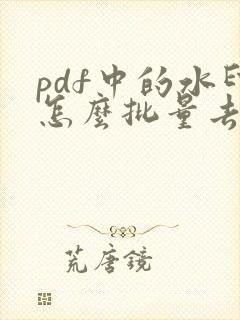 pdf中的水印
怎麼批量去
荒唐鏡